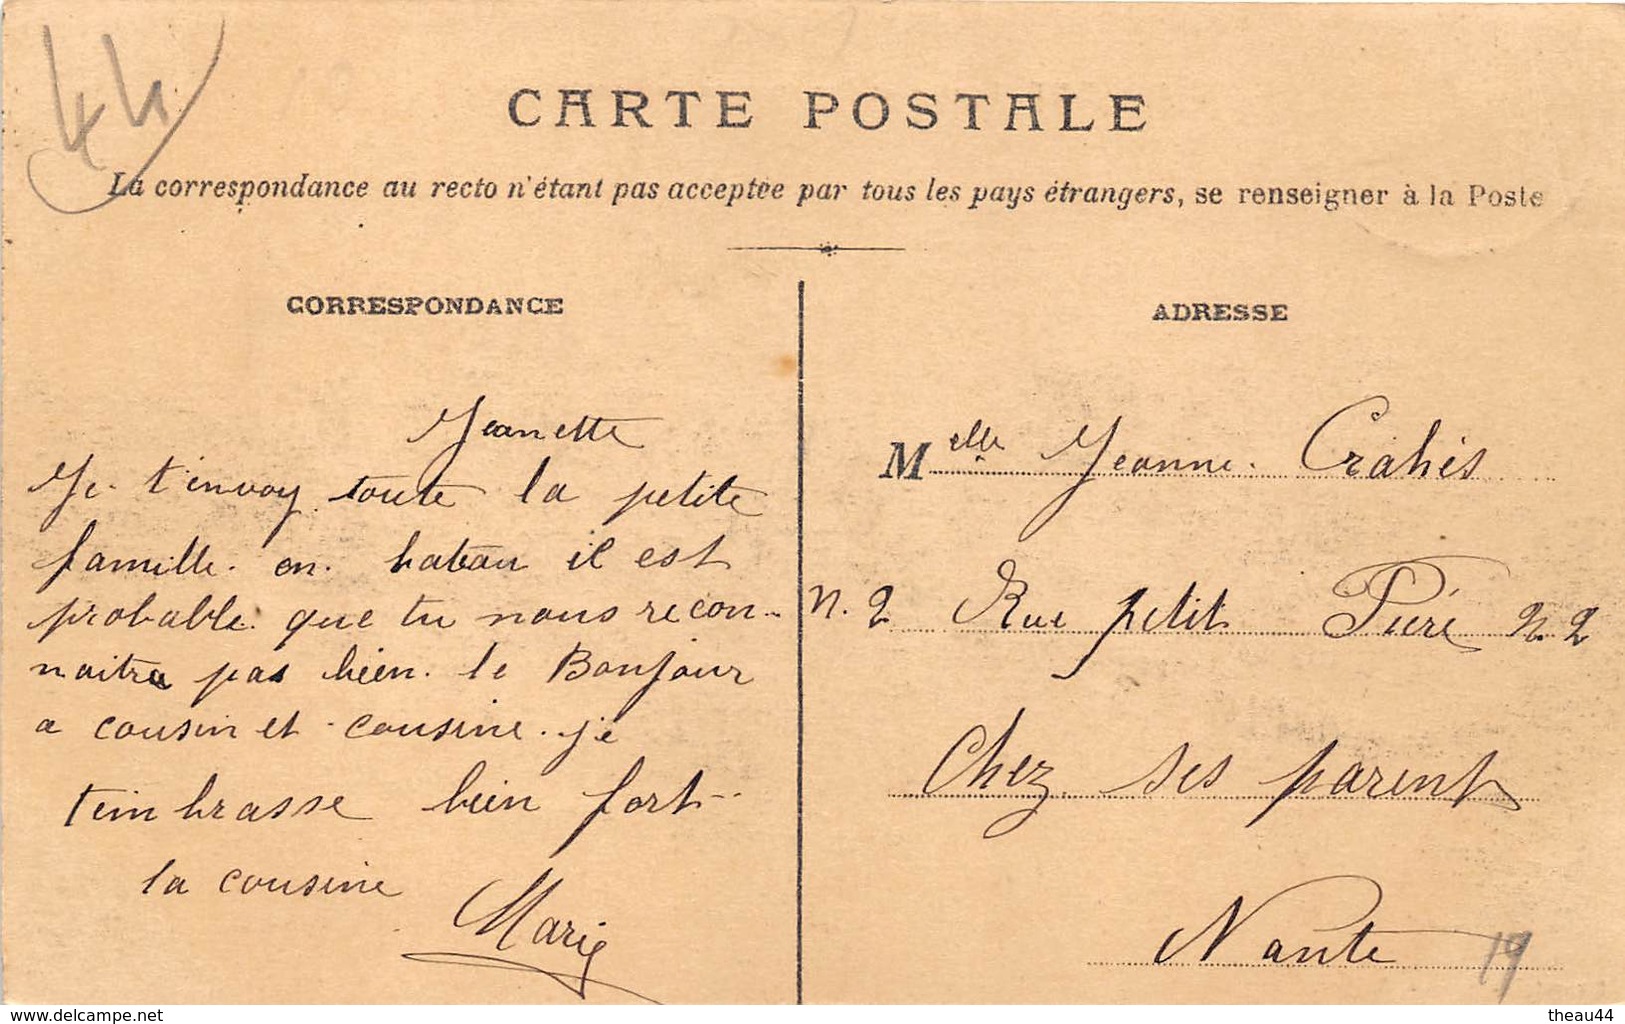 44
CARTE POSTALE
La correspondance au recto n'étant pas acceptée par tous les pays étrangers, se renseigner à la Poste
CORRESPONDANCE
Jeanette
Je t'envoy toute la petite
famille. en. batau il est
probable. que tu nous recon-
naitra pas bien. le Bonjour
a cousin et cousine. je
t'embrasse bien fort
ta cousine
Marie
ADRESSE
Melle Jeanne. Crahès
n. 2 Rue petit Pierre n 2
Chez ses parents
Nante
19
www.delcampe.net
theau44